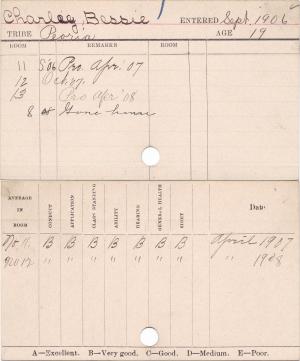 Charley Bessie ENTERED Sept. 1906
TRIBE Peoria AGE 19
ROOM REMARKS ROOM
11 S'06 Pro. Apr. '07
12 Oct. 07.
13 Pro Apr '08
8 Gone home
AVERAGE IN ROOM CONDUCT APPLICATION CLASS STANDING ABILITY HEARING GENERAL HEALTH SIGHT Date
No. B B B B B B B April 1907
No 12 " " " " " " " " 1908
A—Excellent. B—Very good. C—Good. D—Medium. E—Poor.